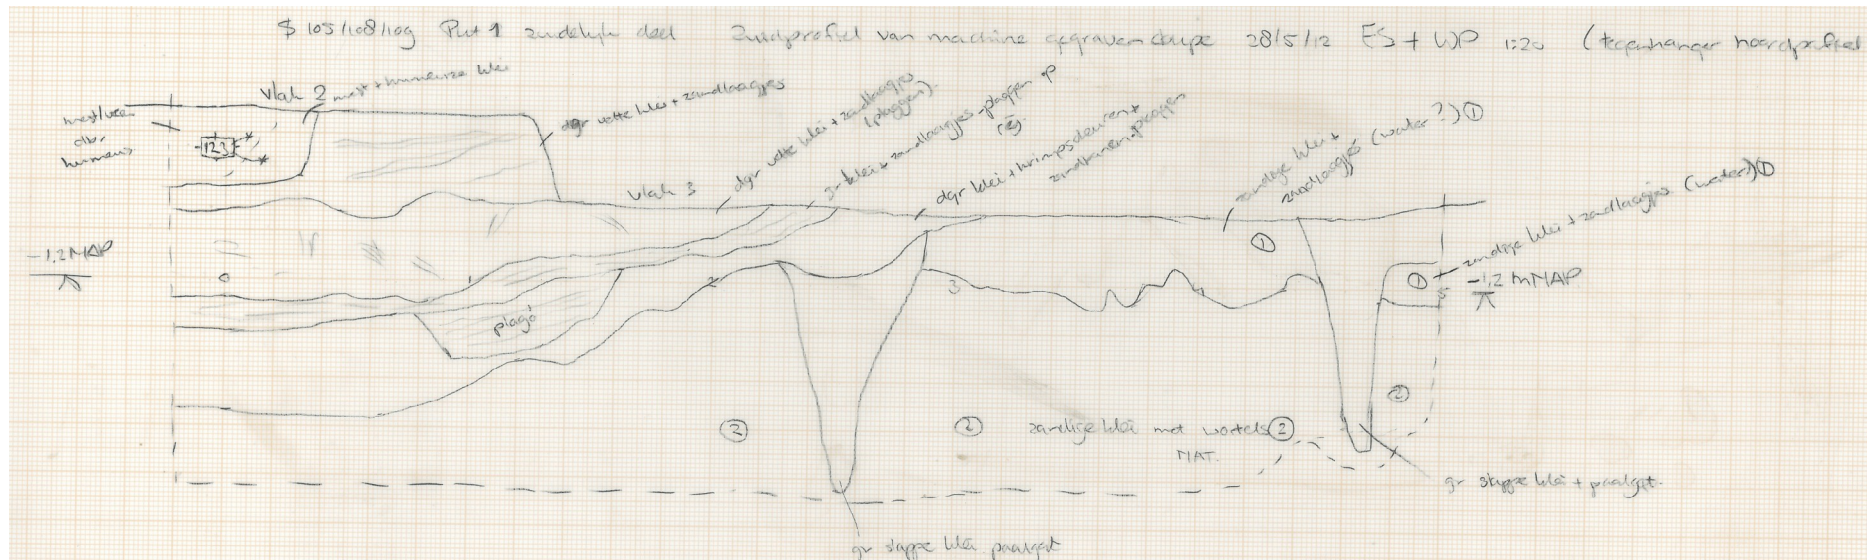 S 105/108/109 Put 1 zuidelijk deel Zuidprofiel van machine gegraven coupe 28/5/12 ES + WP 1:20 (tegenhanger noordprofiel
Vlak 2
mest + humeuze klei
mest/veen
dbr
humeus
123
dgr vette klei + zandlaagjes
dgr vette klei + zandlaagjes
(plaggen)
gr klei + zandlaagjes - plaggen op
dgr klei + krimpscheuren +
zandbanen + plaggen
zandige klei +
zandlaagjes (water?) ①
zandige klei + zandlaagjes (water?) ①
Vlak 3
-1,2 NAP
-1,2 mNAP
0
1
2
3
4
5
①
①
plag
②
②
②
②
zandige klei met wortels
NAT.
gr slappe klei + paalgat.
gr slappe klei paalgat